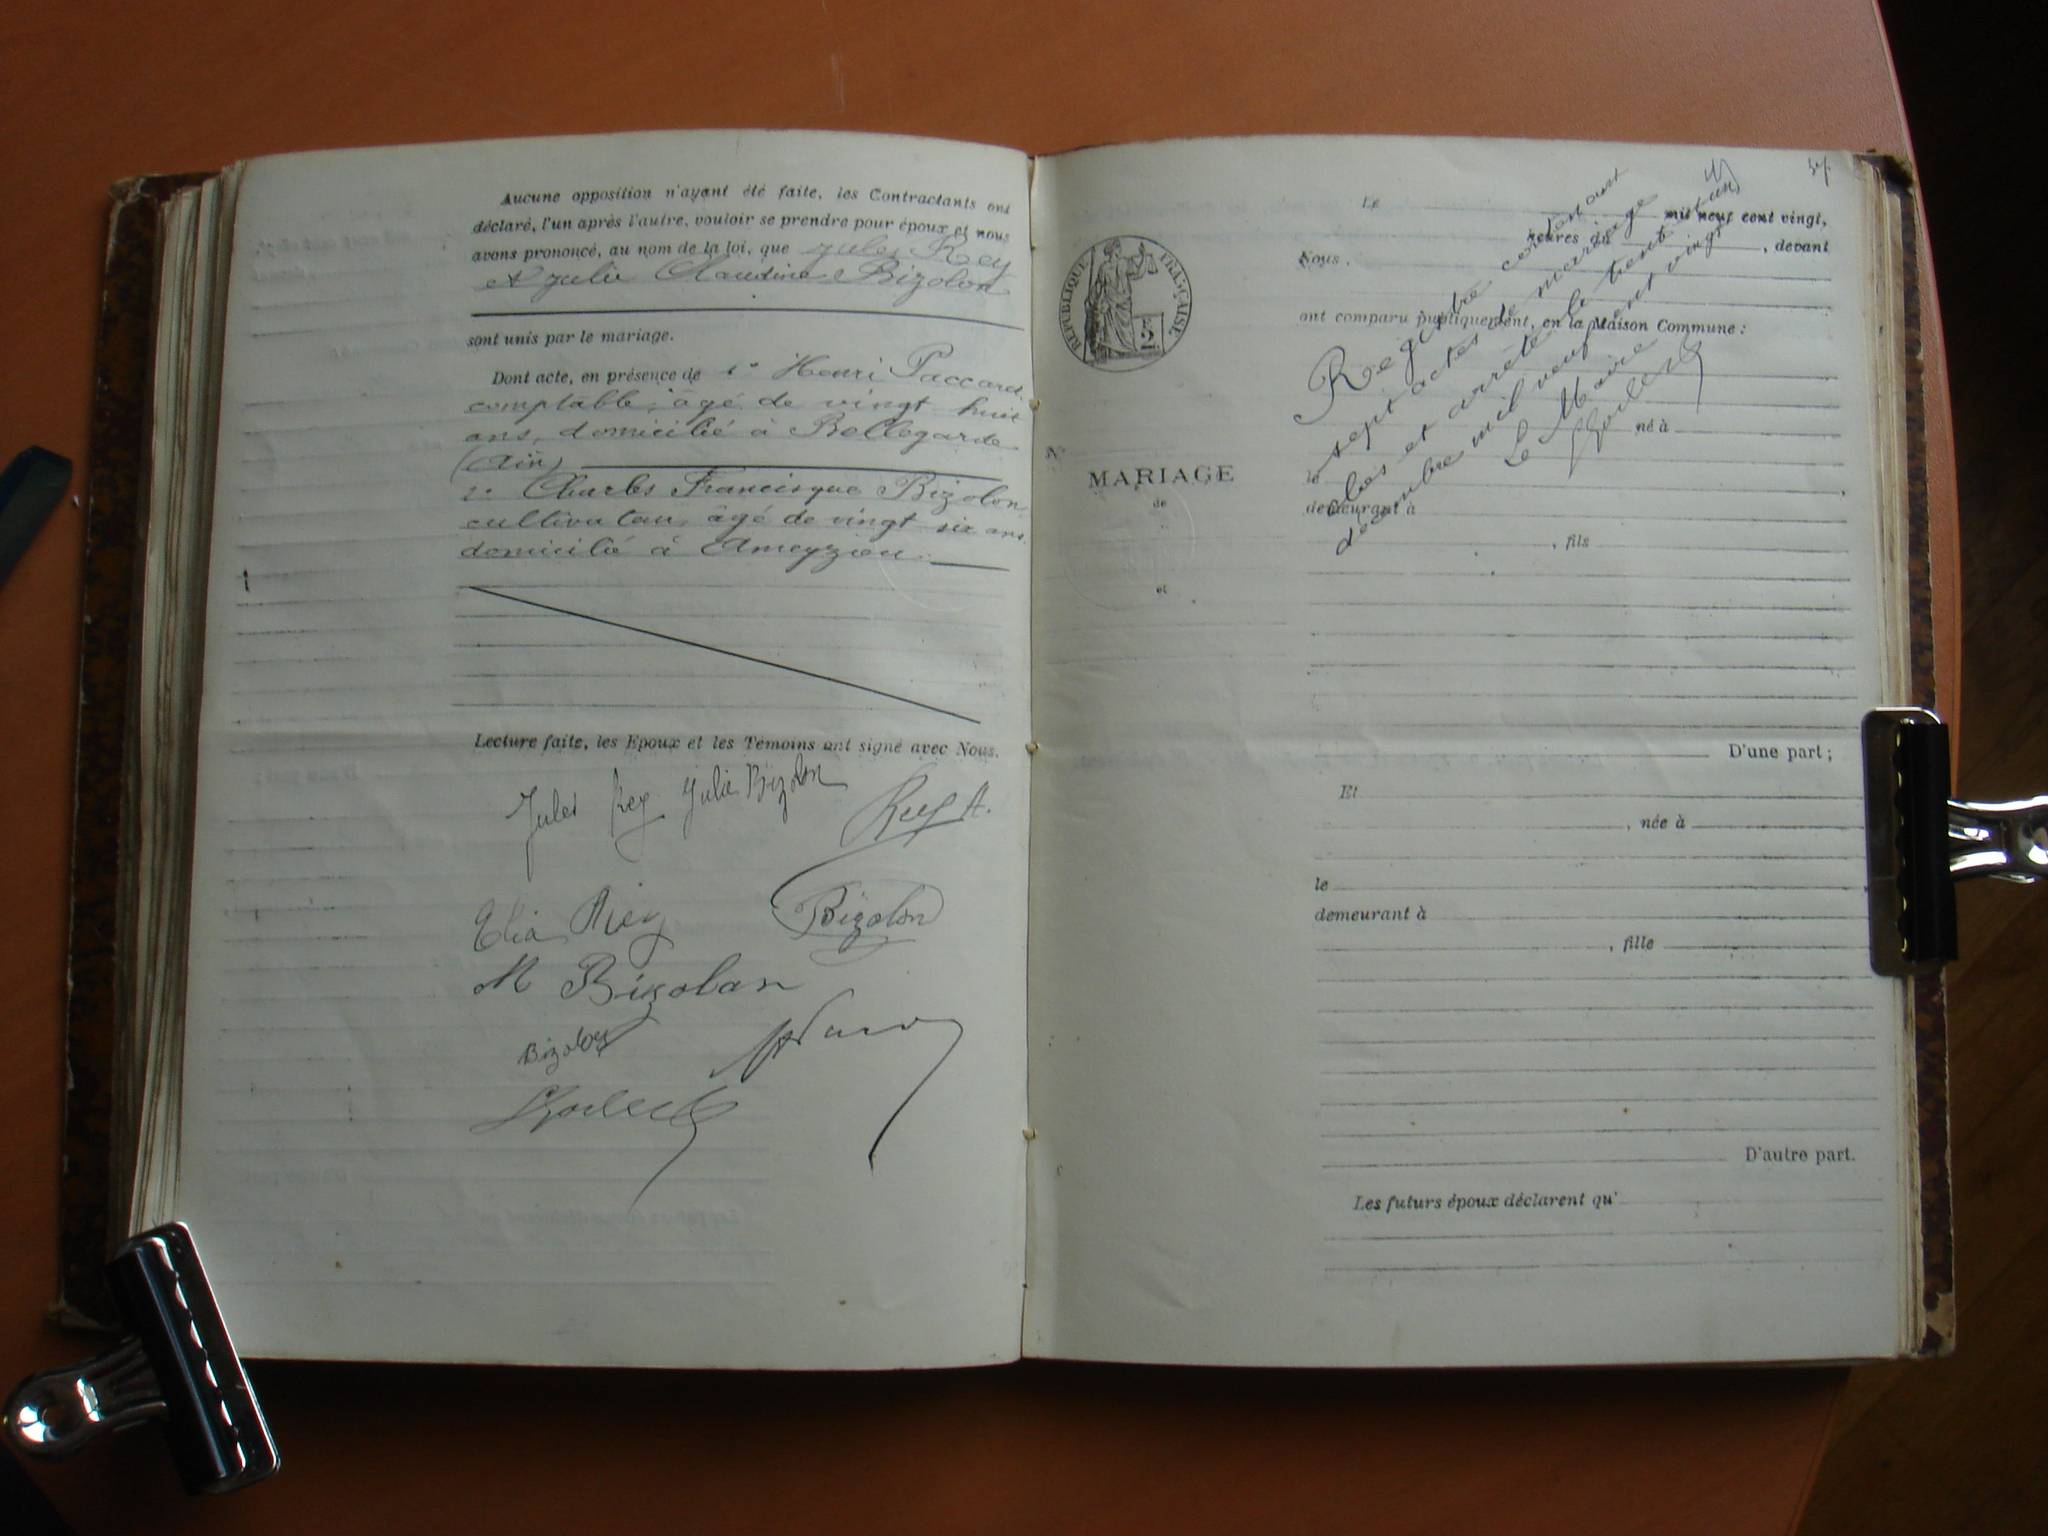 Aucune opposition n'ayant été faite, les Contractants ont
déclaré, l'un après l'autre, vouloir se prendre pour époux et nous
avons prononcé, au nom de la loi, que Jules Rey
et Julie Claudine Bizolon
sont unis par le mariage.
Dont acte, en présence de 1° Henri Paccard
comptable, âgé de vingt huit
ans, domicilié à Bellegarde
(Ain)
2° Charles Francisque Bizolon,
cultivateur, âgé de vingt six ans
domicilié à Ameyzieu.
Lecture faite, les Epoux et les Témoins ont signé avec Nous.
Jules Rey Julie Bizolon
Rey A.
Rey
Bizolon
M Bizolon
Bizolon
Le mil neuf cent vingt,
heures du , devant
Nous,
ont comparu publiquement, en la Maison Commune :
REPUBLIQUE FRANÇAISE
2
Registre contenant
sept actes de mariage
clos et arrêté le trente et un
décembre mil neuf cent vingt
Le Maire
né à
le
demeurant à
, fils
N°
MARIAGE
de
et
D'une part ;
Et
, née à
le
demeurant à
, fille
D'autre part.
Les futurs époux déclarent qu'